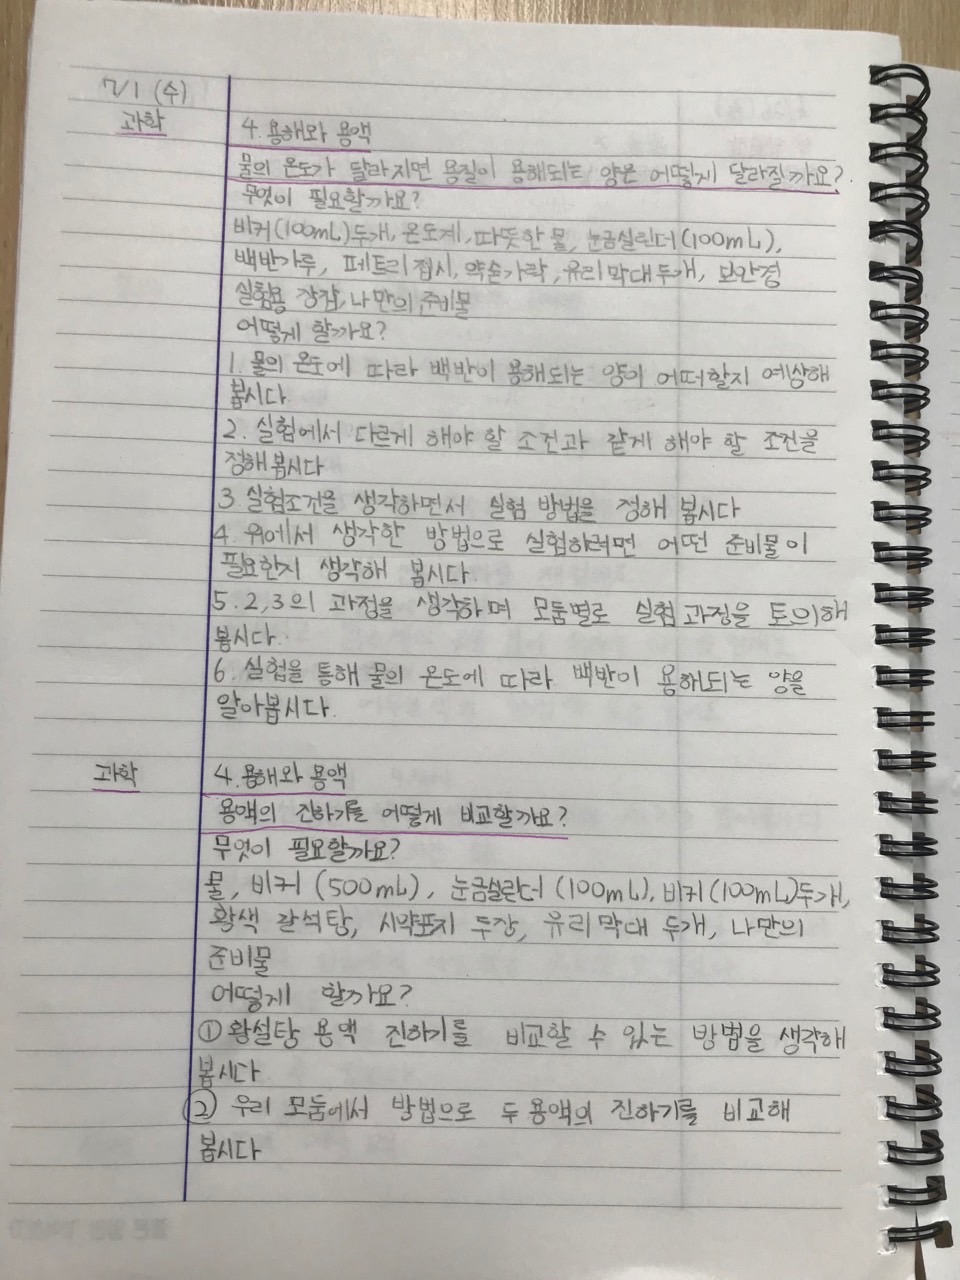 7/1 (수)
과학
4. 용해와 용액
물의 온도가 달라지면 용질이 용해되는 양은 어떻게 달라질까요?
무엇이 필요할까요?
비커(100mL)두개, 온도계, 따뜻한 물, 눈금실린더(100mL),
백반가루, 페트리접시, 약숟가락, 유리막대두개, 보안경
실험용 장갑, 나만의 준비물
어떻게 할까요?
1. 물의 온도에 따라 백반이 용해되는 양이 어떠할지 예상해
봅시다.
2. 실험에서 다르게 해야 할 조건과 같게 해야 할 조건을
정해봅시다
3. 실험조건을 생각하면서 실험 방법을 정해 봅시다
4. 위에서 생각한 방법으로 실험하려면 어떤 준비물이
필요한지 생각해 봅시다.
5. 2,3의 과정을 생각하며 모둠별로 실험 과정을 토의해
봅시다.
6. 실험을 통해 물의 온도에 따라 백반이 용해되는 양을
알아봅시다.
과학
4. 용해와 용액
용액의 진하기를 어떻게 비교할까요?
무엇이 필요할까요?
물, 비커 (500mL), 눈금실린더 (100mL), 비커(100mL)두개,
황색 각설탕, 시약포지 두장, 유리막대 두개, 나만의
준비물
어떻게 할까요?
① 황설탕 용액 진하기를 비교할 수 있는 방법을 생각해
봅시다
② 우리 모둠에서 방법으로 두 용액의 진하기를 비교해
봅시다